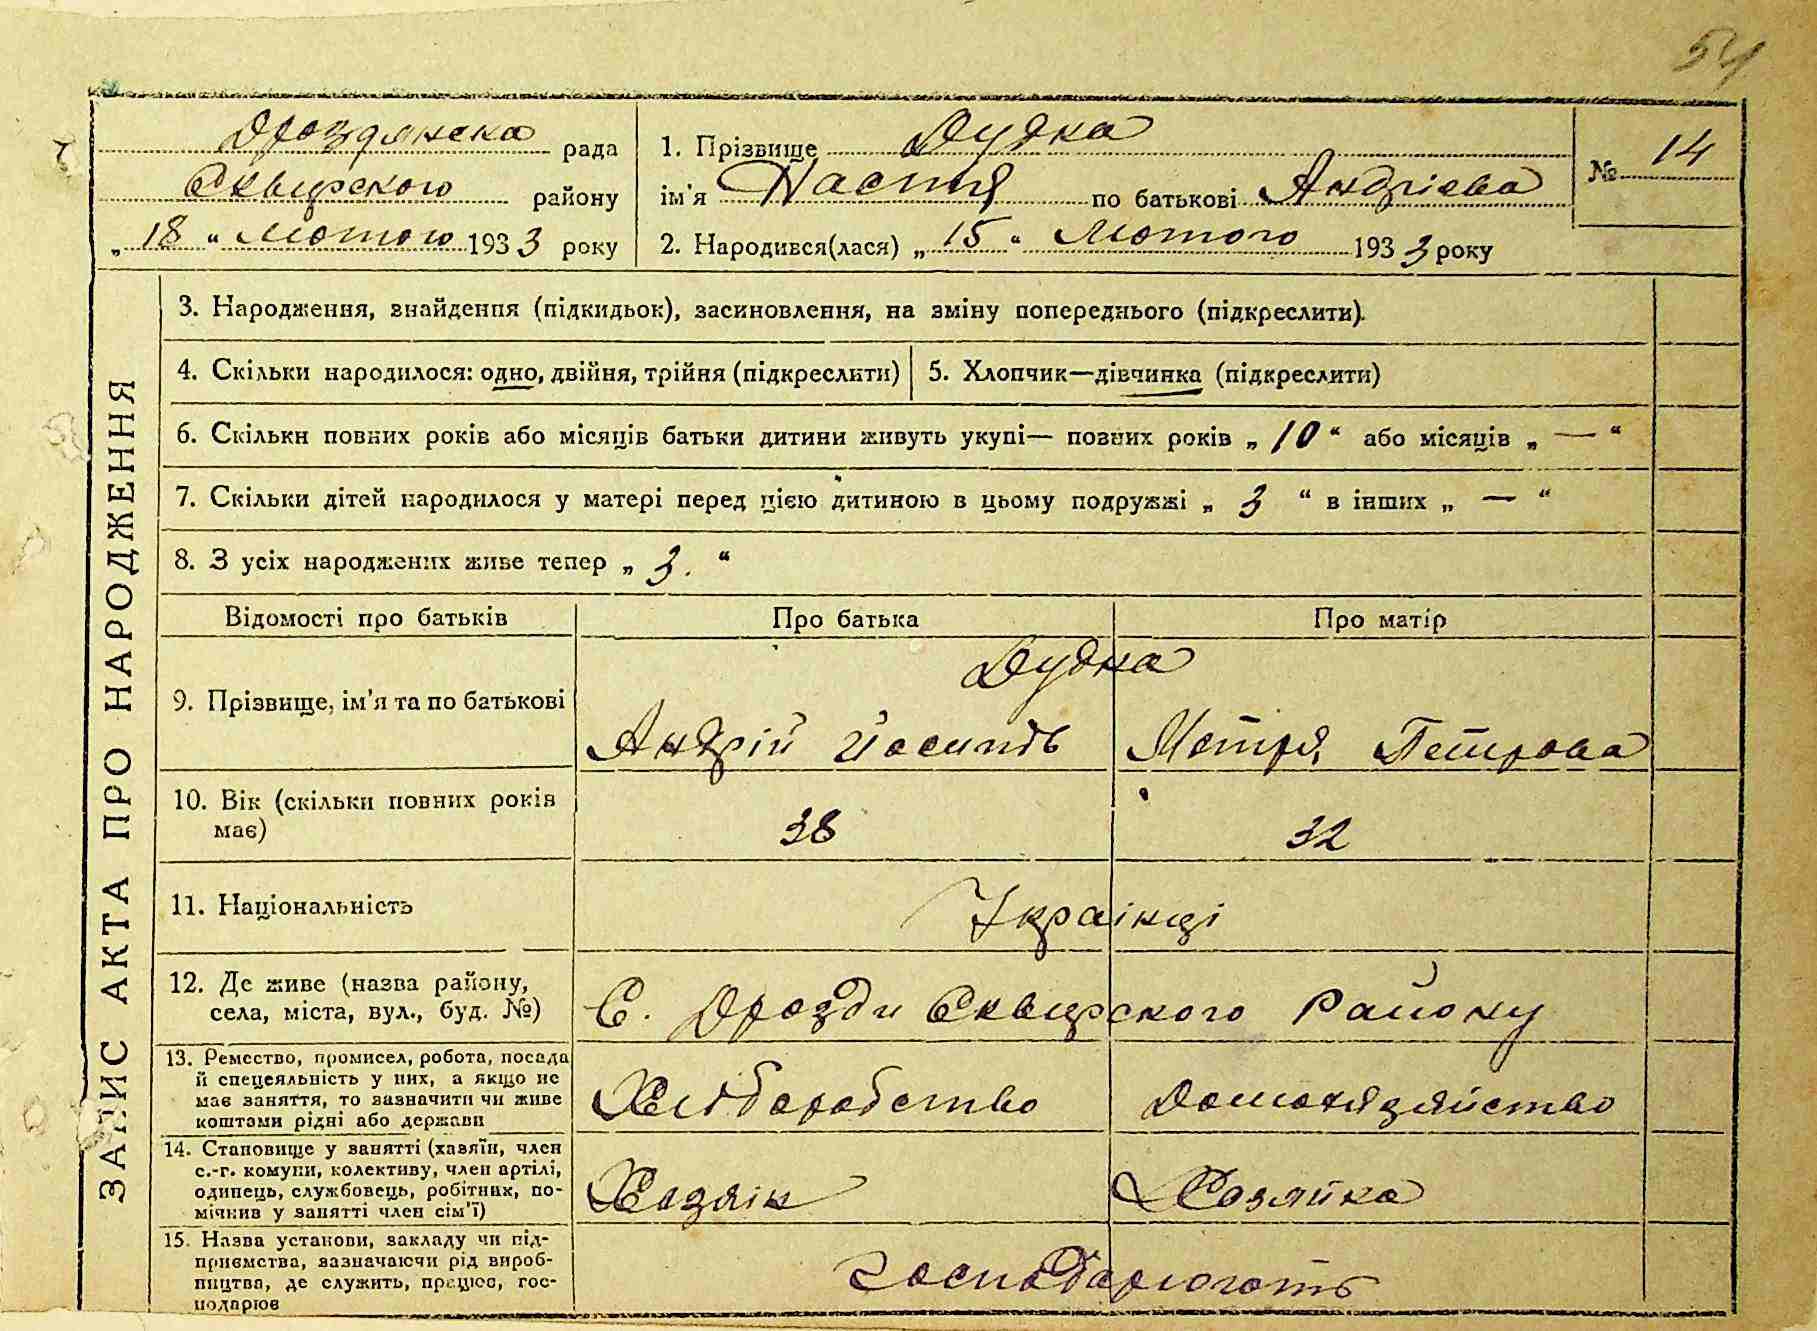 54
Дроздянска рада
Сквирского району
„ 18 “ Лютого 1933 року
1. Прізвище Дудка
ім'я Настя по батькові Андріева
2. Народився(лася) „ 15 “ Лютого 1933 року
№ 14
ЗАПИС АКТА ПРО НАРОДЖЕННЯ
3. Народження, знайдення (підкидьок), засиновлення, на зміну попереднього (підкреслити).
4. Скільки народилося: одно, двійня, трійня (підкреслити)
5. Хлопчик—дівчинка (підкреслити)
6. Скільки повних років або місяців батьки дитини живуть укупі— повних років „ 10 “ або місяців „ — “
7. Скільки дітей народилося у матері перед цією дитиною в цьому подружжі „ 3 “ в інших „ — “
8. З усіх народжених живе тепер „ 3. “
Відомості про батьків
Про батька
Про матір
9. Прізвище, ім'я та по батькові
Дудка
Андрій Йосипів
Мотря Петрова
10. Вік (скільки повних років
має)
38
32
11. Національність
Українці
12. Де живе (назва району,
села, міста, вул., буд. №)
С. Дрозди Сквирского Району
13. Ремество, промисел, робота, посада
й спецеяльність у них, а якщо не
має заняття, то зазначити чи живе
коштами рідні або держави
Хліборобство
Домохязяйство
14. Становище у занятті (хазяїн, член
с.-г. комуни, колективу, член артілі,
одинець, службовець, робітник, по-
мічнив у занятті член сім'ї)
Хазяін
Хозяйка
15. Назва установи, закладу чи під-
приємства, зазначаючи рід вироб-
ництва, де служить, працює, гос-
подарює
Господарюють